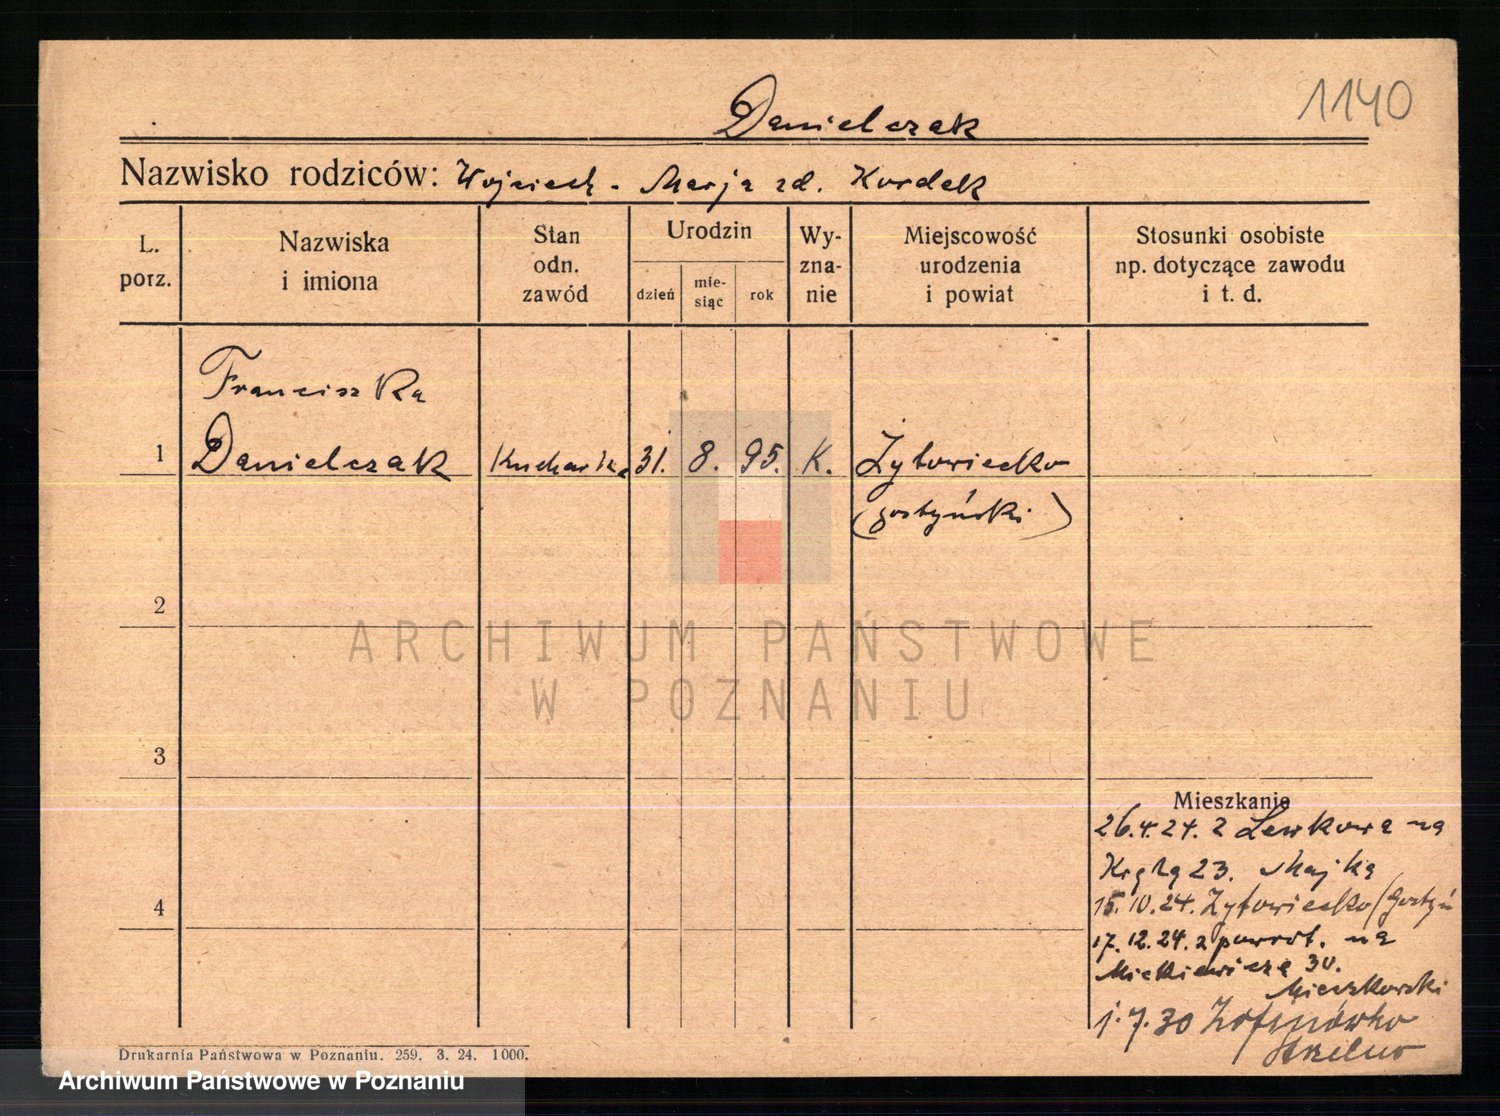 1140
Danielczak
Nazwisko rodziców: Wojciech - Marja zd. Kordek
L. porz.
Nazwiska i imiona
Stan odn. zawód
Urodzin
dzień
mie-siąc
rok
Wy-zna-nie
Miejscowość urodzenia i powiat
Stosunki osobiste np. dotyczące zawodu i t. d.
Franciszka
1 Danielczak Kucharka 31. 8. 95. K. Żytowiecko
(gostyński)
2
3
4
ARCHIWUM PAŃSTWOWE
W POZNANIU
Mieszkanie
26.4.24. z Lewkowa na
23. Majka
15.10.24. Żytowiecko (Gostyń
17.12.24. z powrot. na
Mickiewicza 30.
Mieszkowski
1.7.30
Strzelno
Drukarnia Państwowa w Poznaniu. 259. 3. 24. 1000.
Archiwum Państwowe w Poznaniu